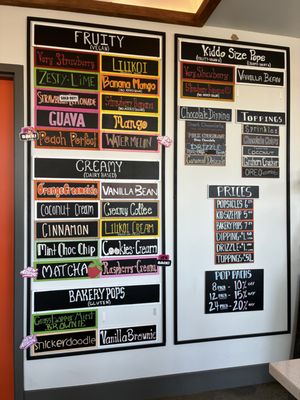 FRUITY
(VEGAN)
Very Strawberry
LILIKOI
ZESTY-LIME
Banana Mango
STRAWBERRY
LEMONADE
Strawberry Banana
GUAVA
MANGO
Peach Perfect
WATERMELON
CREAMY
(DAIRY BASED)
Orange Creamside
VANILLA BEAN
Coconut Cream
Creamy Coffee
CINNAMON
LILIKOI CREAM
Mint Choc Chip
Cookies & Cream
MATCHA
Raspberry & Cream
BAKERY POPS
(GLUTEN)
BROWNIE
Snickerdoodle
Vanilla Brownie
Kiddo Size Pops
Very Strawberry
VANILLA BEAN
Strawberry Banana
Chocolate Dipping
DARK CHOCOLATE
DRIZZLE
Caramel Drizzle
TOPPINGS
Sprinkles
Chocolate Chips
COCONUT
Graham Cracker
OREO
PRICES
POPSICLES 6
KID SIZE POPS 5
BAKERY POPS 7
DIPPING
DRIZZLE
TOPPING .50
POP PACKS
8 PACK - 10% OFF
12 PACK - 15% OFF
24 PACK - 20% OFF